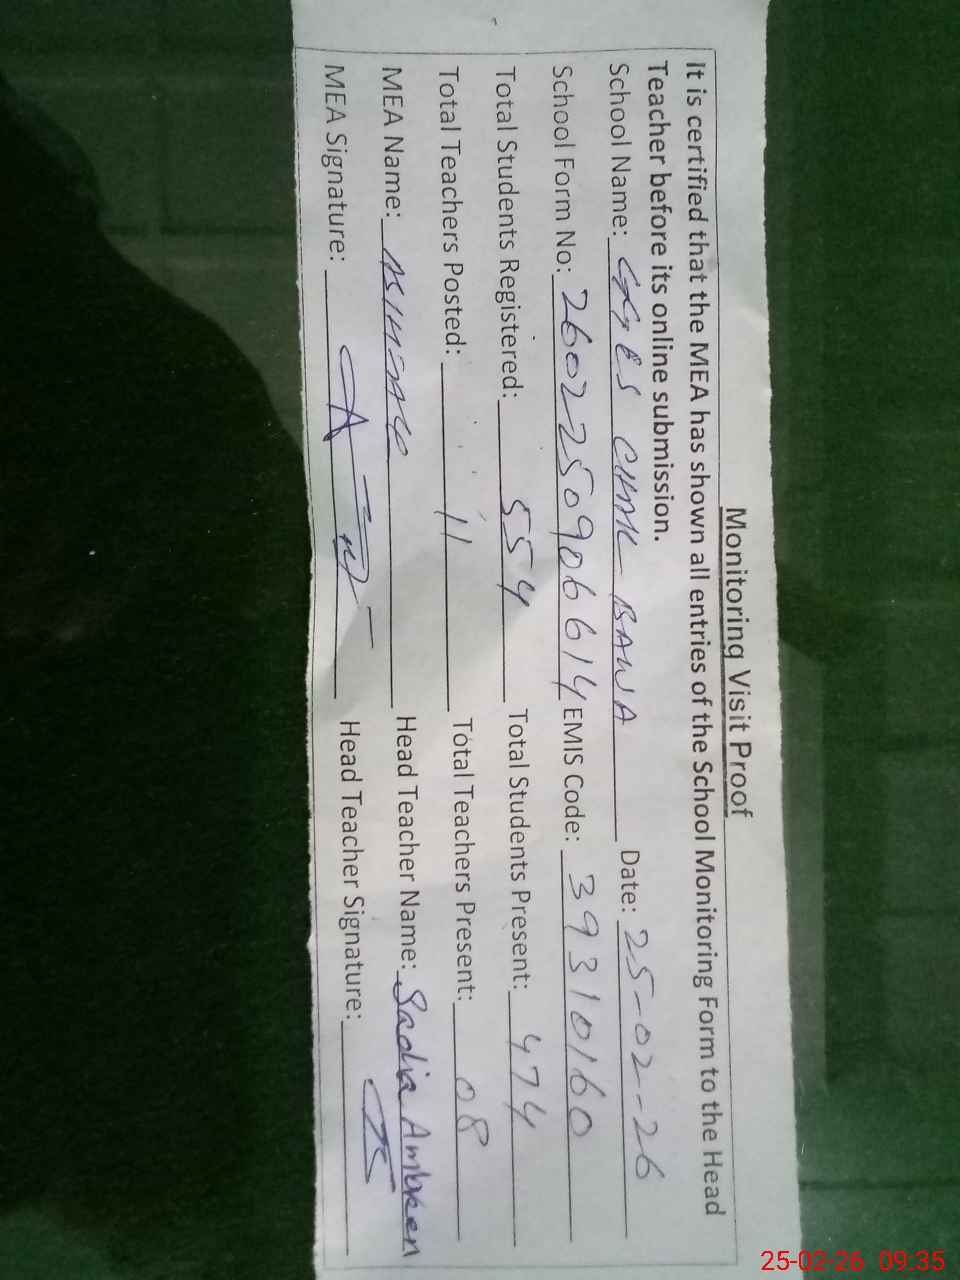 Monitoring Visit Proof
It is certified that the MEA has shown all entries of the School Monitoring Form to the Head
Teacher before its online submission.
School Name: GGES CHAK BAWA Date: 25-02-26
School Form No: 2602250906614 EMIS Code: 39310160
Total Students Registered: 554 Total Students Present: 474
Total Teachers Posted: 11 Total Teachers Present: 08
MEA Name: Head Teacher Name: Sadia Ambreen
MEA Signature: Head Teacher Signature:
25-02-26 09:35